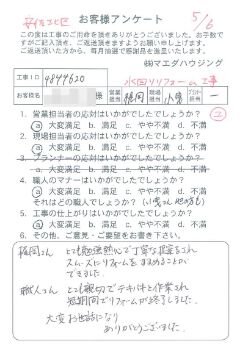 お客様アンケート
5/6
この度は工事のご用命を頂きありがとうございました。お手数で
すがご記入頂き、ご返送頂きますようお願い申し上げます。
ご返送頂いた方から、毎月抽選で感謝品を進呈いたします。
㈱マエダハウジング
工事ID 4844620 水回りリフォーム工事
お客様名 様 営業担当 現場担当 プランナー担当 ー
②
1. 営業担当者の応対はいかがでしたでしょうか?
ⓐ大変満足 b.満足 c.やや不満 d.不満
2. 現場担当者の応対はいかがでしたでしょうか?
ⓐ大変満足 b.満足 c.やや不満 d.不満
3. プランナーの応対はいかがでしたでしょうか?
a.大変満足 b.満足 c.やや不満 d.不満
4. 職人のマナーはいかがでしたでしょうか?
ⓐ大変満足 b.満足 c.やや不満 d.不満
それはどの職人でしょうか?
5. 工事の仕上がりはいかがでしたでしょうか?
ⓐ大変満足 b.満足 c.やや不満 d.不満
6. その他、ご意見・ご要望をお書き下さい。
とても熱心で丁寧な提案をされ
スムーズにリフォームをすすめることが
できました。
職人さん とても親切でテキパキと作業され
短期間でリフォームが終了しました。
大変お世話になり
ありがとうございました。